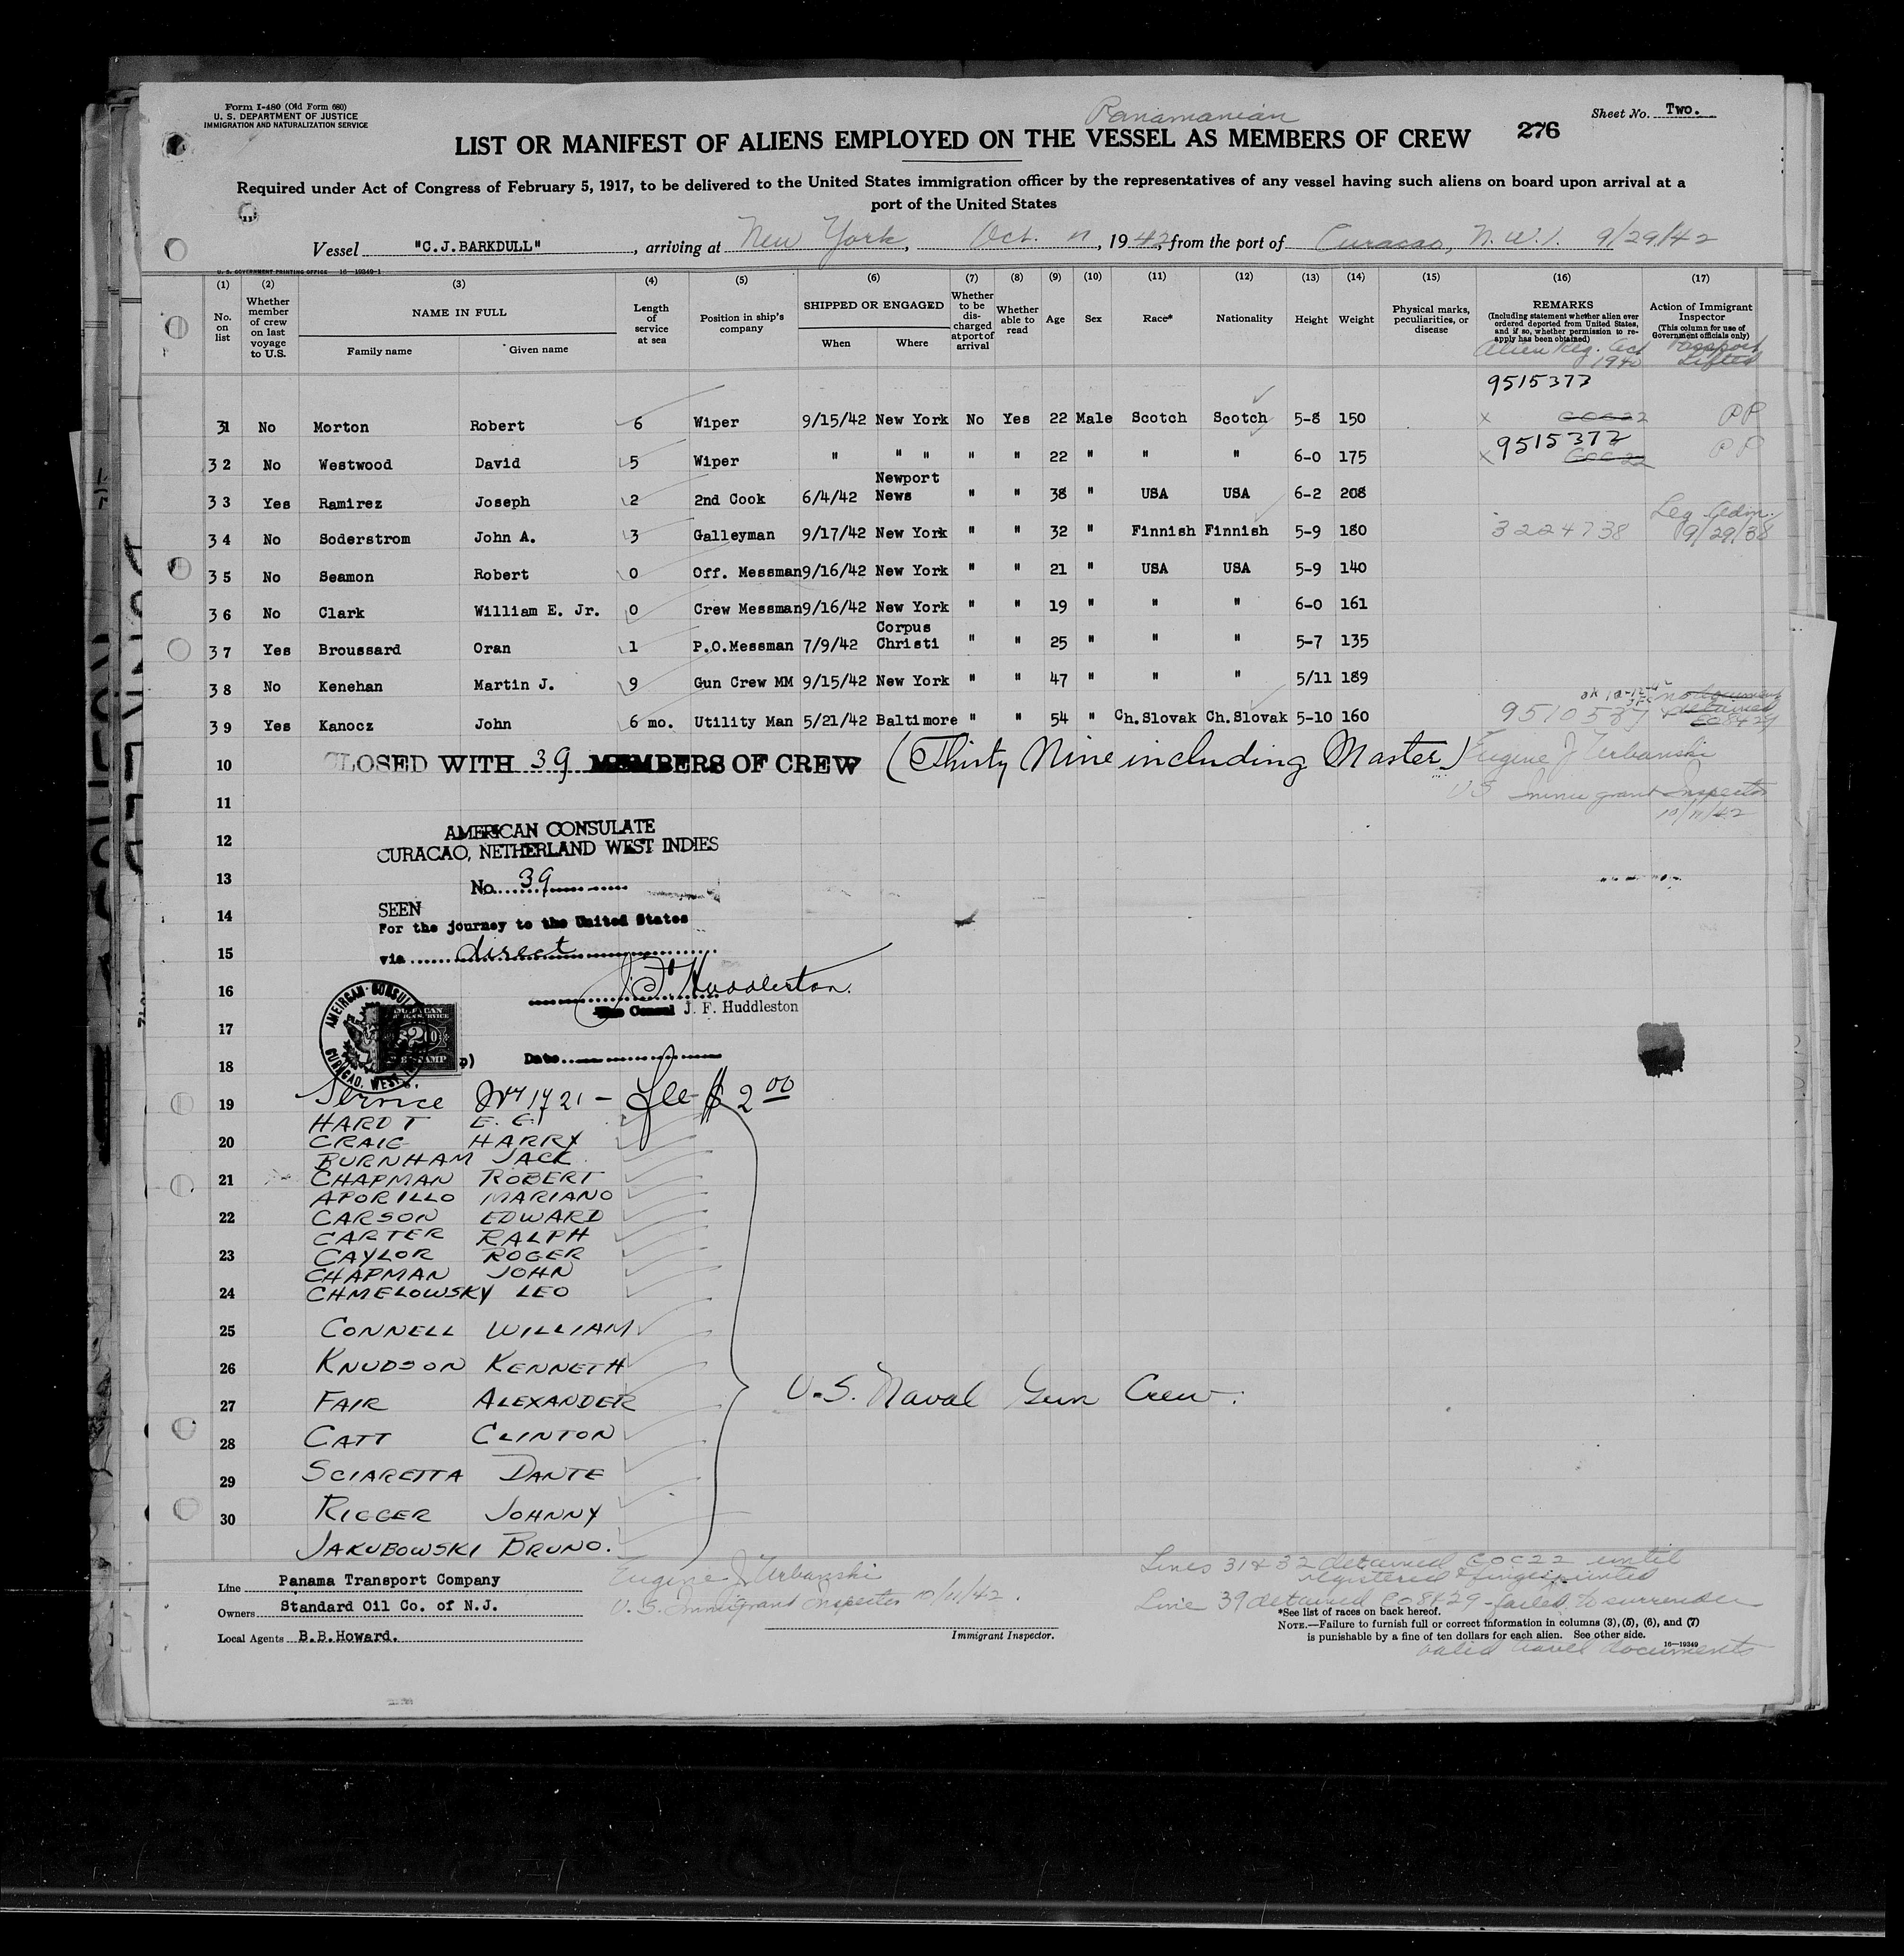 Form I-480 (Old Form 680)
U. S. DEPARTMENT OF JUSTICE
IMMIGRATION AND NATURALIZATION SERVICE
Panamanian
Sheet No. Two.
LIST OR MANIFEST OF ALIENS EMPLOYED ON THE VESSEL AS MEMBERS OF CREW
276
Required under Act of Congress of February 5, 1917, to be delivered to the United States immigration officer by the representatives of any vessel having such aliens on board upon arrival at a
port of the United States
Vessel "C.J.BARKDULL", arriving at New York, Oct. 11, 1942, from the port of Curacao, N.W.I. 9/29/42
U. S. GOVERNMENT PRINTING OFFICE 16—19349-1
(1) (2) (3) (4) (5) (6) (7) (8) (9) (10) (11) (12) (13) (14) (15) (16) (17)
No. on list
Whether member of crew on last voyage to U.S.
NAME IN FULL
Family name
Given name
Length of service at sea
Position in ship's company
SHIPPED OR ENGAGED
When
Where
Whether to be discharged at port of arrival
Whether able to read
Age
Sex
Race*
Nationality
Height
Weight
Physical marks, peculiarities, or disease
REMARKS
(Including statement whether alien ever ordered deported from United States, and if so, whether permission to reapply has been obtained)
Alien Reg. Act 1940
Action of Immigrant Inspector
(This column for use of Government officials only)
Passport Lifted
9515373
31 No Morton Robert 6 Wiper 9/15/42 New York No Yes 22 Male Scotch Scotch 5-8 150 x COC22 PP
9515372
32 No Westwood David 5 Wiper " " " " " 22 " " " 6-0 175 x COC22 PP
33 Yes Ramirez Joseph 2 2nd Cook 6/4/42 Newport News " " 38 " USA USA 6-2 208
34 No Soderstrom John A. 3 Galleyman 9/17/42 New York " " 32 " Finnish Finnish 5-9 180 3224738 Leg. Adm. 9/29/38
35 No Seamon Robert 0 Off. Messman 9/16/42 New York " " 21 " USA USA 5-9 140
36 No Clark William E. Jr. 0 Crew Messman 9/16/42 New York " " 19 " " " 6-0 161
37 Yes Broussard Oran 1 P.O.Messman 7/9/42 Corpus Christi " " 25 " " " 5-7 135
38 No Kenehan Martin J. 9 Gun Crew MM 9/15/42 New York " " 47 " " " 5/11 189
39 Yes Kanocz John 6 mo. Utility Man 5/21/42 Baltimore " " 54 " Ch.Slovak Ch.Slovak 5-10 160 9510537 no document detained CO8429
10 CLOSED WITH 39 MEMBERS OF CREW (Thirty Nine including Master) Eugene J Urbanski
11 US Immigrant Inspector
10/11/42
12 AMERICAN CONSULATE
CURACAO, NETHERLAND WEST INDIES
13 No. 39
14 SEEN
For the journey to the United States
15 via direct
16 J F Huddleston.
Vice Consul J. F. Huddleston
17
18 Date
AMERICAN CONSULATE
CURACAO, WEST
19 Service No 1721 - fee $ 2 00
HARDT E. G.
20 CRAIG HARRY
BURNHAM JACK.
21 CHAPMAN ROBERT
APORILLO MARIANO
22 CARSON EDWARD
CARTER RALPH
23 CAYLOR ROGER
CHAPMAN JOHN
24 CHMELOWSKY LEO
25 CONNELL WILLIAM
26 KNUDSON KENNETH
27 FAIR ALEXANDER
U.S. Naval Gun Crew.
28 CATT CLINTON
29 SCIARETTA DANTE
30 RIGGER JOHNNY
JAKUBOWSKI BRUNO.
Line Panama Transport Company
Owners Standard Oil Co. of N.J.
Local Agents B.B.Howard.
Eugene J Urbanski
U.S. Immigrant Inspector 10/11/42.
Immigrant Inspector.
Lines 31 & 32 detained COC22 until
registered & fingerprinted
Line 39 detained CO8429 - failed to surrender
valid travel documents
*See list of races on back hereof.
NOTE.—Failure to furnish full or correct information in columns (3), (5), (6), and (7)
is punishable by a fine of ten dollars for each alien. See other side.
16—19349